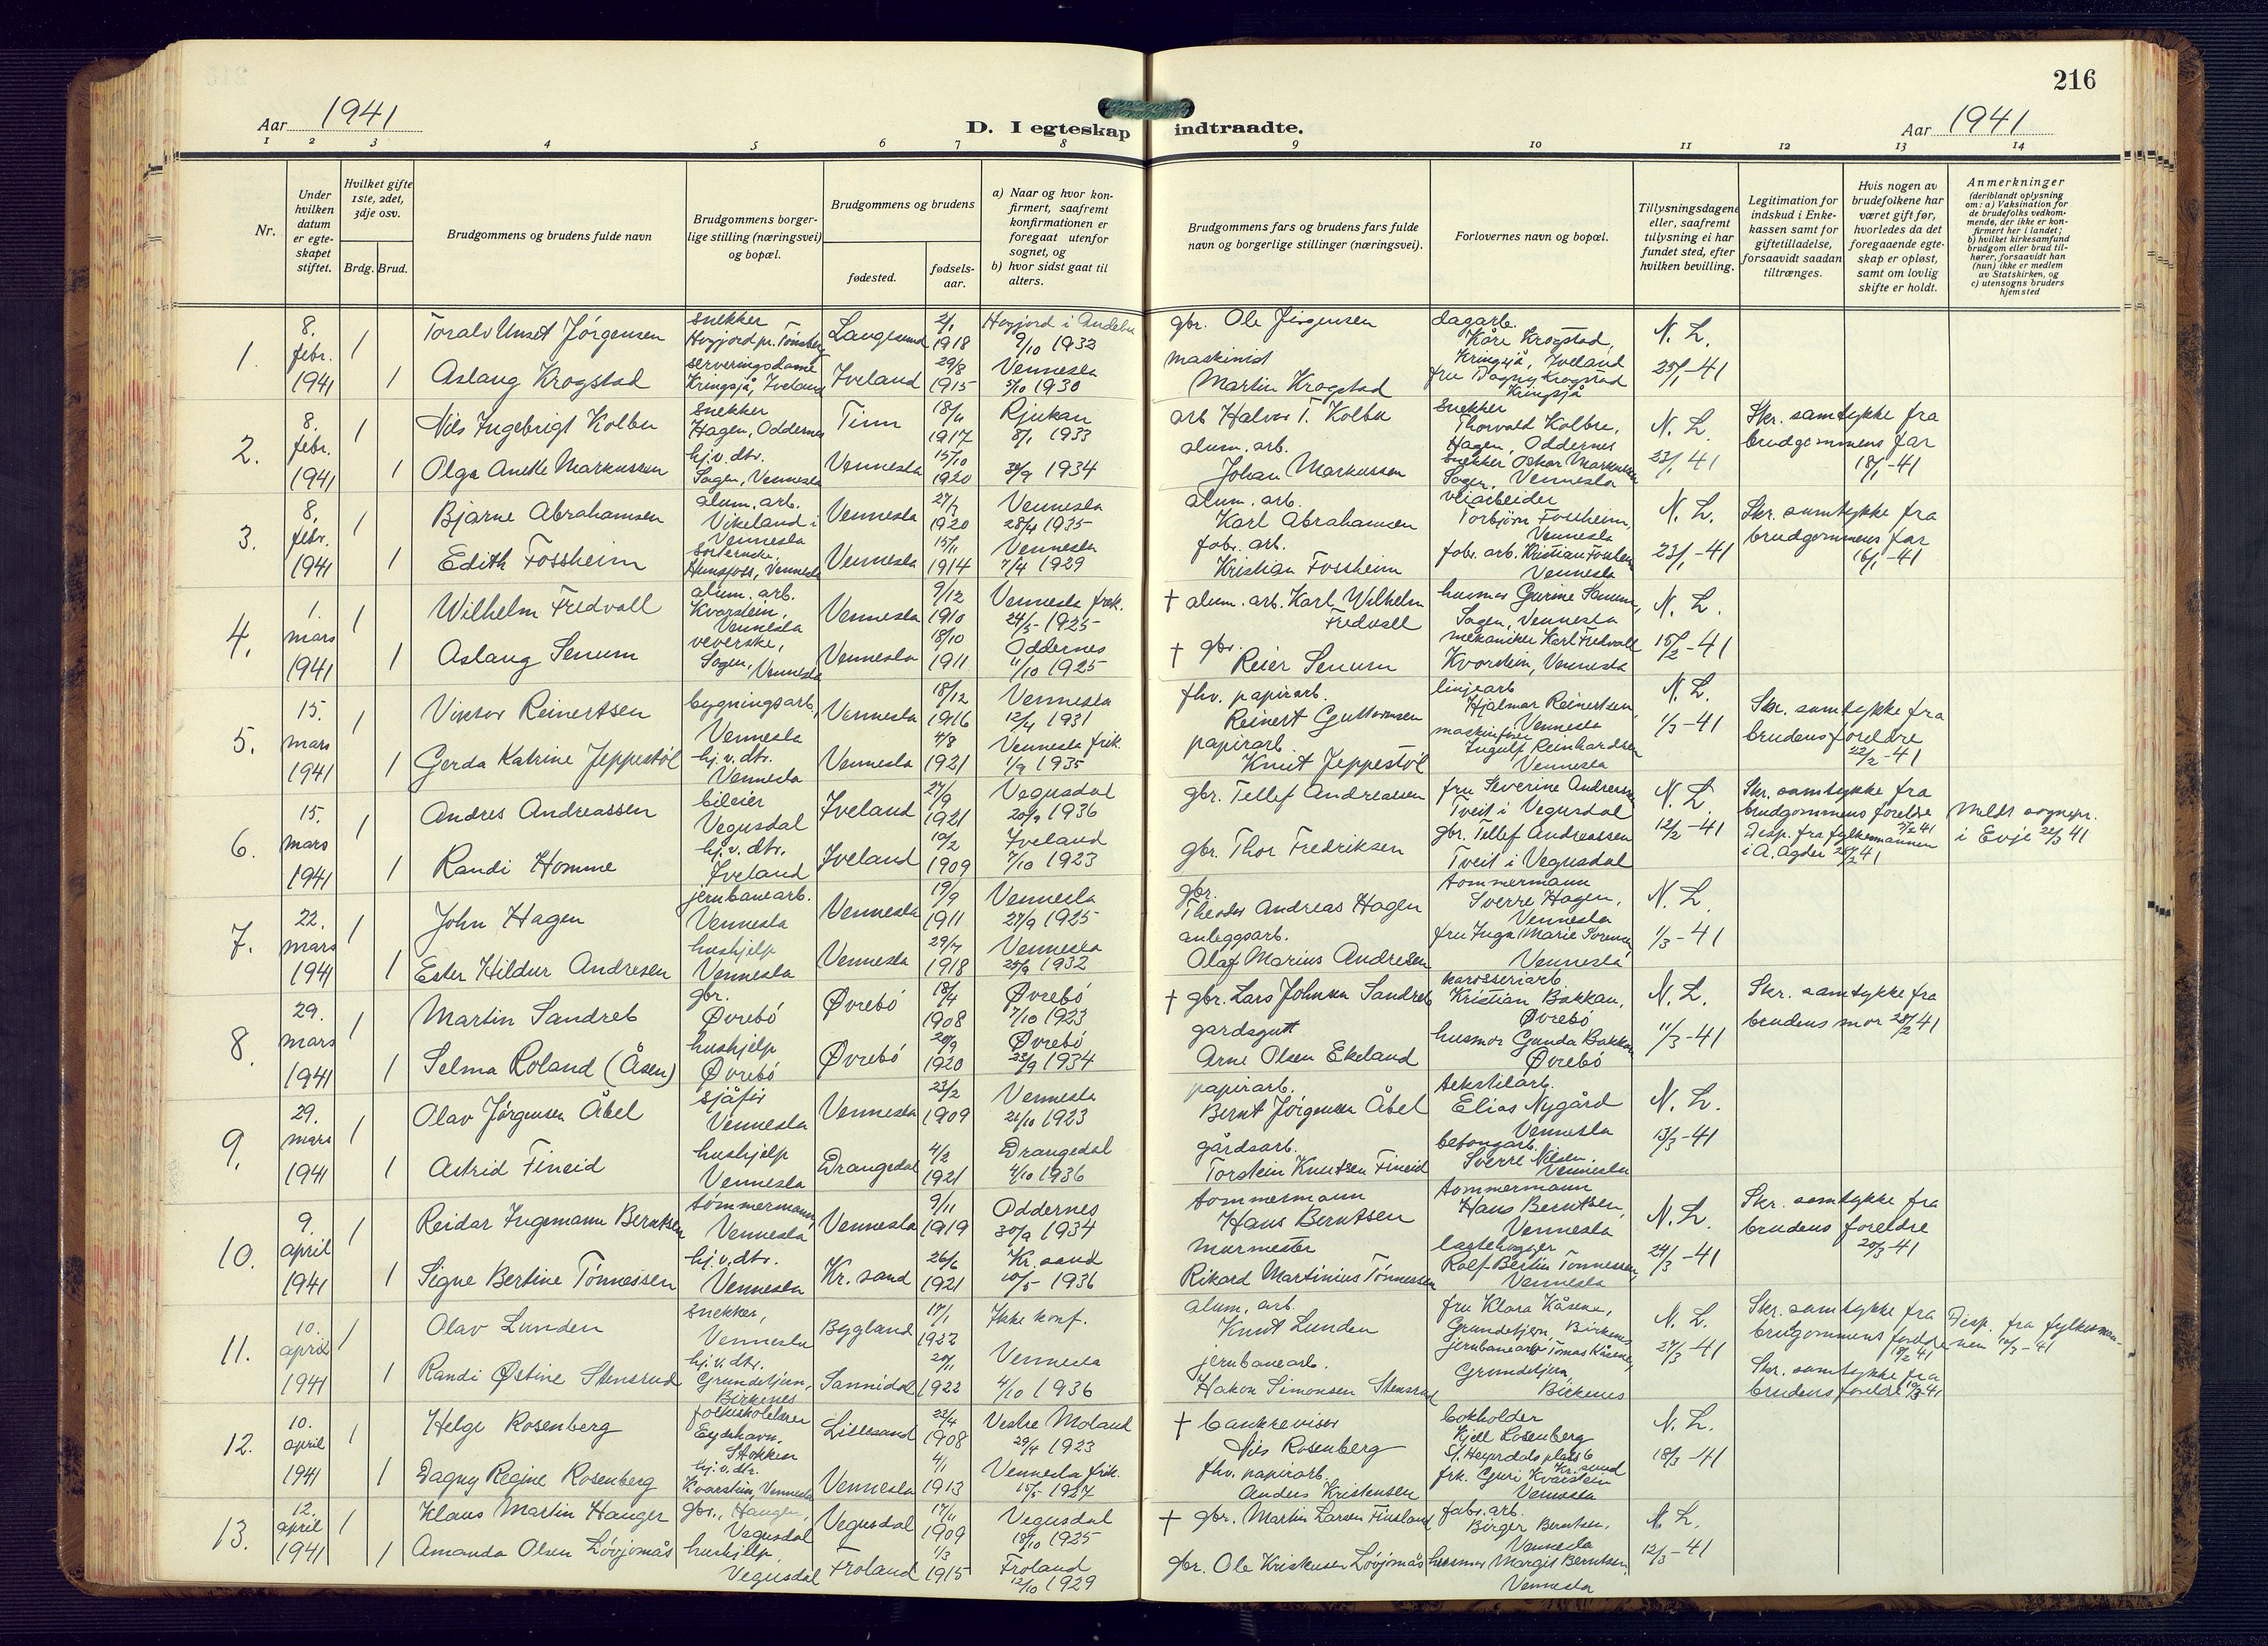 216
Aar 1941
D. I egteskap indtraadte.
Aar 1941
1 2 3 4 5 6 7 8 9 10 11 12 13 14
Nr.
Under hvilken datum er egteskapet stiftet.
Hvilket gifte 1ste, 2det, 3dje osv.
Brdg. Brud.
Brudgommens og brudens fulde navn
Brudgommens borgerlige stilling (næringsvei) og bopæl.
Brudgommens og brudens
fødested.
fødselsaar.
a) Naar og hvor konfirmert, saafremt konfirmationen er foregaat utenfor sognet, og
b) hvor sidst gaat til alters.
Brudgommens fars og brudens fars fulde navn og borgerlige stillinger (næringsvei).
Forlovernes navn og bopæl.
Tillysningsdagene eller, saafremt tillysning ei har fundet sted, efter hvilken bevilling.
Legitimation for indskud i Enkekassen samt for giftetilladelse, forsaavidt saadan tiltrænges.
Hvis nogen av brudefolkene har været gift før, hvorledes da det foregaaende egteskap er opløst, samt om lovlig skifte er holdt.
Anmerkninger
(deriblandt oplysning om: a) Vaksination for de brudefolks vedkommende, der ikke er konfirmert her i landet; b) hvilket kirkesamfund brudgom eller brud tilhører, forsaavidt han (hun) ikke er medlem av Statskirken, og c) utensogns bruders hjemsted
1. 8. febr. 1941
1 Toralv Unset Jørgensen snekker Høgjord pr. Tønsberg Langesund 2/1 1918 Høgjord i Andebu 9/10 1932 gbr. Ole Jørgensen dagarb. Kåre Krogstad, Kringsjå, Iveland N. L.
1 Aslaug Krogstad serveringsdame Kringsjå, Iveland Iveland 29/8 1915 Vennesla 5/10 1930 maskinist Martin Krogstad fru Dagny Krogstad Kringsjå 25/1-41
2. 8. febr. 1941
1 Nils Ingebrigt Kolbu snekker Hagen, Oddernes Tinn 18/11 1917 Rjukan 8/1 1933 arb Halvor T. Kolbu snekker Thorvald Kolbu, Hagen, Oddernes N. L. Skr. samtykke fra brudgommens far 18/1-41
1 Olga Anette Markussen hj.v.dtr. Sagen, Vennesla Vennesla 15/10 1920 30/9 1934 alum. arb. Johan Markussen snekker Oskar Markussen Sagen, Vennesla 23/1 41
3. 8. febr. 1941
1 Bjarne Abrahamsen alum. arb. Vikeland i Vennesla Vennesla 27/7 1920 Vennesla 28/4 1935 alum. arb. Karl Abrahamsen veiarbeider Torbjørn Fossheim, Vennesla N. L. Skr. samtykke fra brudgommens far 16/1-41
1 Edith Fossheim Hunsfoss, Vennesla Vennesla 15/11 1914 Vennesla 7/4 1929 fabr. arb. Kristian Fossheim fabr. arb. Kristian Fossheim Vennesla 23/1-41
4. 1. mars 1941
1 Wilhelm Fredvall alum. arb. Kvarstein, Vennesla Vennesla 9/12 1910 Vennesla frik. 24/5 1925 † alum. arb. Karl Wilhelm Fredvall husmor Gurine Senum, Sagen, Vennesla N. L.
1 Aslaug Senum veverske, Sagen, Vennesla Vennesla 18/10 1911 Oddernes 11/10 1925 † gbr. Reier Senum mekaniker Karl Fredvall Kvarstein, Vennesla 15/2-41
5. 15. mars 1941
1 Viktor Reinertsen bygningsarb, Vennesla Vennesla 18/12 1916 Vennesla 12/4 1931 fhv. papirarb. Reinert Guttormsen linjearb Hjalmar Reinertsen, Vennesla N. L. Skr. samtykke fra brudens foreldre 22/2-41
1 Gerda Katrine Jeppestøl hj.v.dtr. Vennesla Vennesla 4/8 1921 Vennesla frik. 1/9 1935 papirarb. Knut Jeppestøl maskinfører Ingulf Reinhardsen Vennesla 1/3-41
6. 15. mars 1941
1 Andres Andreassen bileier Vegusdal Iveland 27/9 1921 Vegusdal 20/9 1936 gbr. Tellef Andreassen fru Severine Andreassen Tveit i Vegusdal N. L. Skr. samtykke fra brudgommens foreldre 5/2 41 Disp. fra fylkesmannen i A. Agder 25/2 41 Meldt sognepr. i Evje 22/3 41
1 Randi Homme hj.v.dtr. Iveland Iveland 10/2 1909 Iveland 7/10 1923 gbr. Thor Fredriksen gbr. Tellef Andreassen Tveit i Vegusdal 12/2-41
7. 22. mars 1941
1 John Hagen jernbanearb. Vennesla Vennesla 19/9 1911 Vennesla 27/9 1925 gbr. Theodor Andreas Hagen tømmermann Sverre Hagen, Vennesla N. L.
1 Ester Hildur Andresen hushjelp Vennesla Vennesla 29/7 1918 Vennesla 25/9 1932 anleggsarb. Olaf Marius Andresen fru Inga Marie Sørensen Vennesla 1/3-41
8. 29. mars 1941
1 Martin Sandreb gbr. Øvrebö Øvrebö 18/4 1908 Øvrebö 7/10 1923 † gbr. Lars Johnsen Sandreb karosseriarb. Kristian Bakkan, Øvrebö N. L. Skr. samtykke fra brudens mor 28/2 41
1 Selma Roland (Åsen) hushjelp Øvrebö Øvrebö 20/9 1920 Øvrebö 23/9 1934 gardsgutt Arne Olsen Ekeland husmor Gunda Bakkan Øvrebö 11/3-41
9. 29. mars 1941
1 Olav Jørgensen Åbel sjåfør Vennesla Vennesla 23/2 1909 Vennesla 21/10 1923 papirarb. Bernt Jørgensen Åbel tekstilarb. Elias Nygård Vennesla N. L.
1 Astrid Fineid hushjelp Vennesla Drangedal 4/2 1921 Drangedal 4/10 1936 gårdsarb. Torstein Knutsen Fineid betongarb. Sverre Nilsen. Vennesla 13/3-41
10. 9. april 1941
1 Reidar Ingemann Berntsen tømmermann, Vennesla Vennesla 9/11 1919 Oddernes 30/9 1934 tømmermann Hans Berntsen tømmermann Hans Berntsen, Vennesla N. L. Skr. samtykke fra brudens foreldre 20/3-41
1 Signe Bertine Tønnessen hj.v.dtr. Vennesla Kr. sand 26/6 1921 Kr. sand 10/5 1936 murmester Rikard Martinius Tønnessen Rolf Bertin Tønnessen, Vennesla 24/3-41
11. 10. april 1941
1 Olav Lunden snekker, Vennesla Bygland 17/1 1922 Ikke konf. alum. arb. Knut Lunden fru Klara Kåsene, Grundetjern, Birkenes N. L. Skr. samtykke fra brudgommens foreldre 18/2 41 Disp. fra fylkesmannen 10/3-41
1 Randi Østine Stensrud hj.v.dtr. Grundetjern, Birkenes Sannidal 20/11 1922 Vennesla 4/10 1936 jernbanearb. Hakon Simonsen Stensrud jernbanearb Tomas Kåsene, Grundetjern Birkenes 27/3-41 Skr. samtykke fra brudens foreldre
12. 10. april 1941
1 Helge Rosenberg folkeskolelærer Eydehavn. Stokken Lillesand 22/4 1908 Vestre Moland 29/4 1923 † bankrevisor Nils Rosenberg bokholder Kjell Rosenberg St. Heyerdals plass 6 Kr. sund N. L.
1 Dagny Regine Rosenberg hj.v.dtr. Kvarstein, Vennesla Vennesla 4/1 1913 Vennesla frik. 15/5 1927 fhv. papirarb. Anders Kristensen frk. Guri Kvarstein Vennesla 18/3-41
13. 12. april 1941
1 Klaus Martin Hauger gbr., Haugen, Vegusdal Vegusdal 17/11 1909 Vegusdal 18/10 1925 † gbr. Martin Larsen Finsland fabr. arb. Birger Berntsen, Vennesla N. L.
1 Amanda Olsen Løvjomås hushjelp, Vegusdal Froland 1/3 1915 Froland 12/10 1929 gbr. Ole Kristensen Løvjomås husmor Margit Berntsen, Vennesla 12/3-41